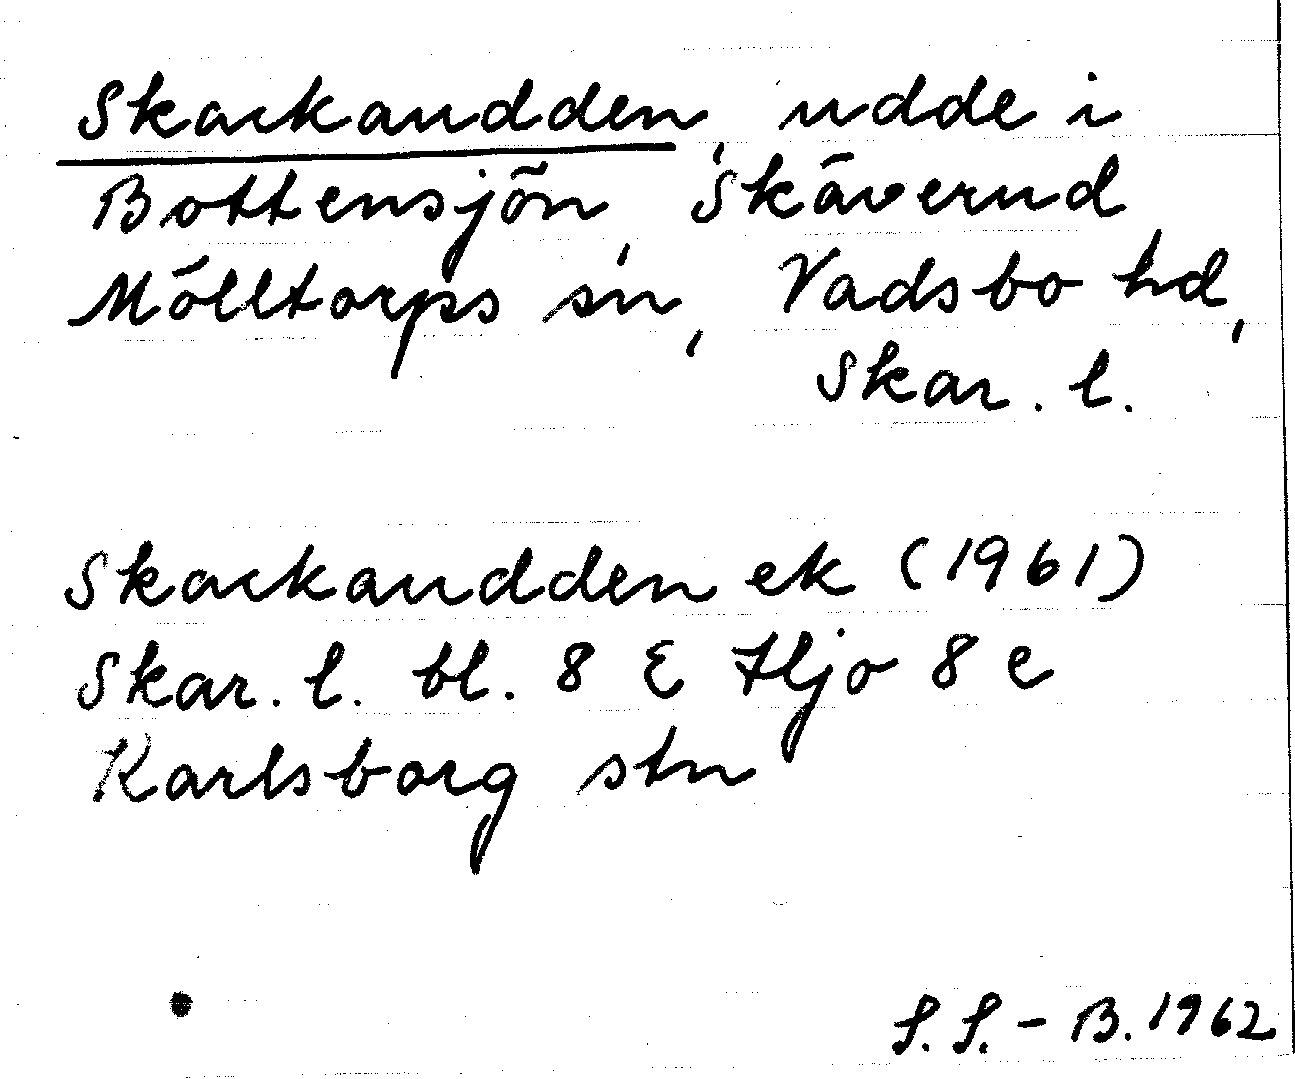 Skackaudden, udde i
Bottensjön, Skäverud
Mölltorps sn, Vadsbo hd,
Skar. l.
Skackaudden ek (1961)
Skar. l. bl. 8 E Hjo 8 e
Karlsborg stn
S. S. - B. 1962